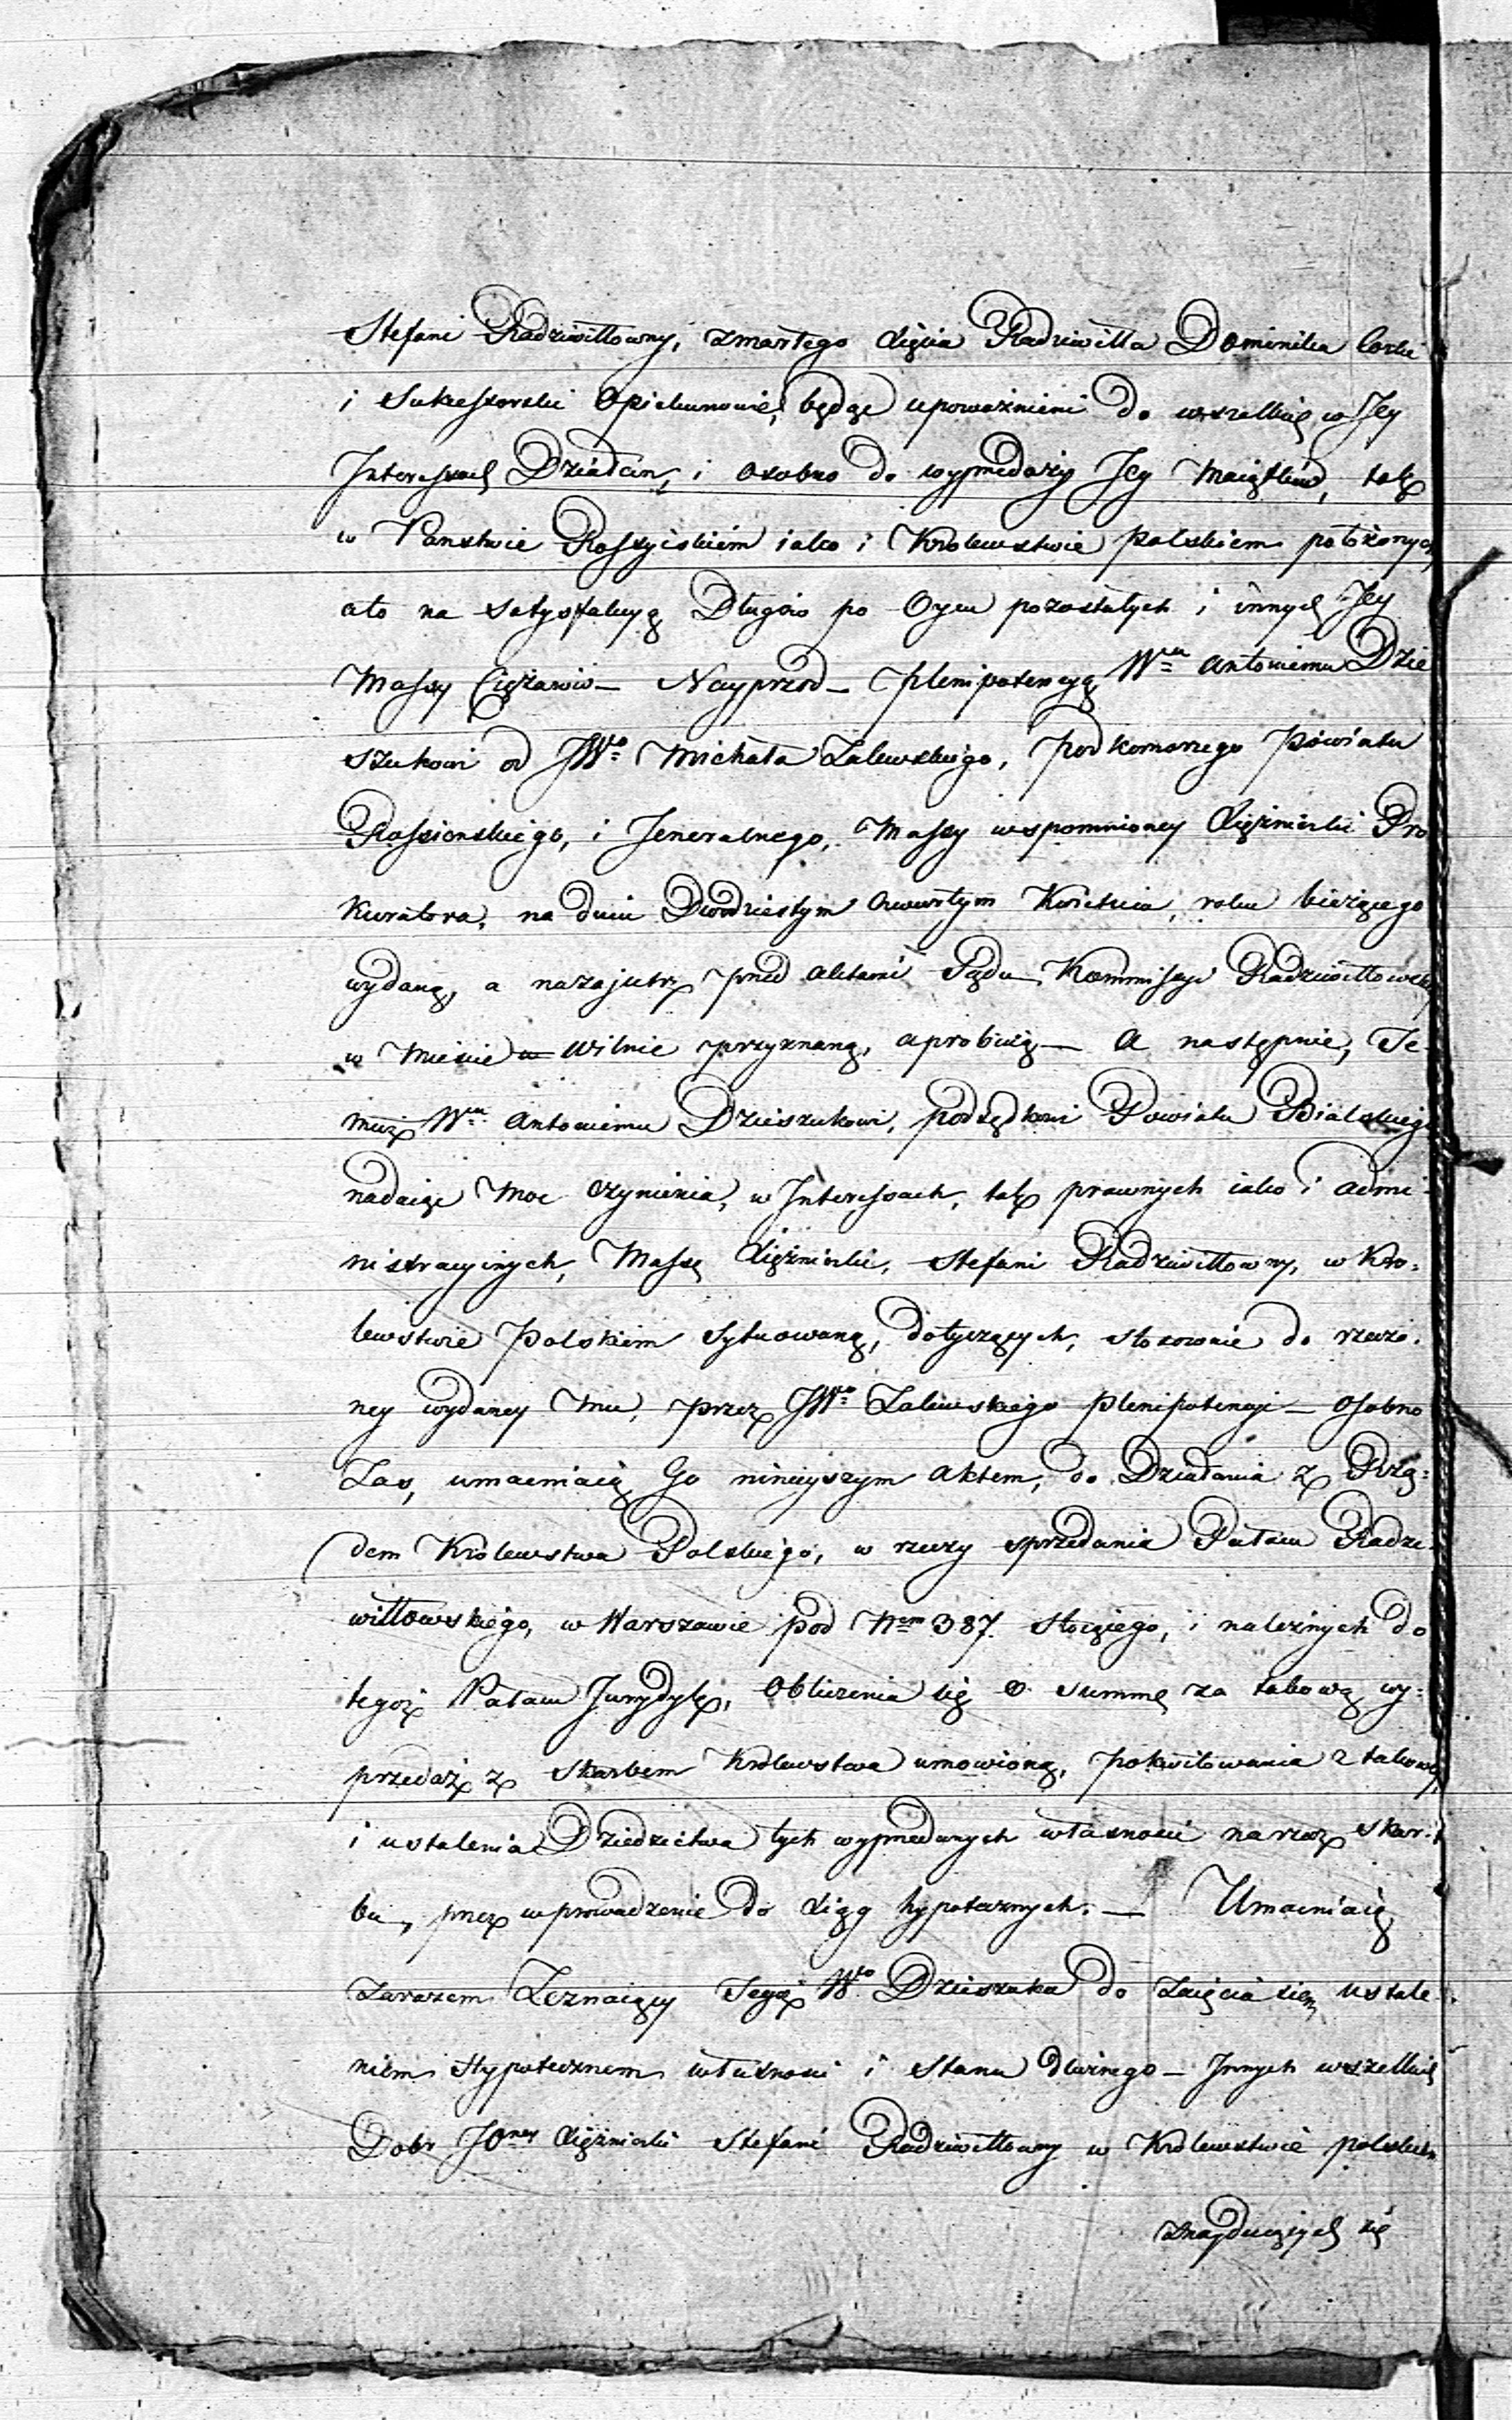 Stefani Radziwiłłowny, zmarłego Xięcia Radziwiłła Dominika Corki
i Sukcessorski Opiekunowie, będąc upoważnieni do wszelkich w Jey
Interessach Działań, i osobno do wyprzedaży Jey Maiątków, tak
w Państwie Rossyiskiem iako i Królewstwie Polskiem położonych,
a to na satysfakcyą Długów po Oycu pozostałych i innych Jey
Massy Ciężarów — Nayprzod — Plenipotencyą Wmu Antoniemu Dzie
szukowi od JWo Michała Zalewskiego, Podkomorzego Powiatu
Rossienskiego, i Jeneralnego, Massy wspomnioney Xiężniczki Pro
kuratora, na dniu Dwudziestym czwartym Kwietnia, roku bieżącego
wydaną, a nazajutrz przed Aktami Sądu Kommissyi Radziwiłłowskiey
w Mieście Wilnie przyznaną, aprobuią — A następnie, Te-
muż Wmu Antoniemu Dzieszukowi, podsędkowi Powiatu Bialskiego
nadaiąc Moc czynienia, w Interessach, tak prawnych iako i admi-
nistracyinych, Massę Xiężniczki, Stefani Radziwiłłowny, w Kró-
lewstwie Polskiem sytuowaną, dotyczących, stosownie do rzeczo-
ney wydaney Mu, przez JWo Zalewskiego Plenipotencyi — Osobno
Zas, umacniaią Go ninieyszym Aktem, do Działania z Rzą-
dem Królewstwa Polskiego, w rzeczy sprzedania Pałacu Radzi-
wiłłowskiego, w Warszawie pod Nrem 387. stoiącego, i należnych do
tegoż Pałacu Jurydyk, Obliczenia się o summę za takową wy-
przedaż z Skarbem Królewstwa umowioną, Pokwitowania z takowey,
i ustalenia Dziedzictwa tych wyprzedanych własności na rzecz Skar-
bu, przez wprowadzenie do Xiąg hypotecznych. — Umacniaią
Zarazem Zeznaiący Tegoż Wo Dzieszuka do Zaięcia się ustale-
niem Hypotecznem własności i Stanu Dłużnego — Innych wszelkich
Dobr JOney Xiężniczki Stefani Radziwiłłowny w Królewstwie polskiem
znayduiących się